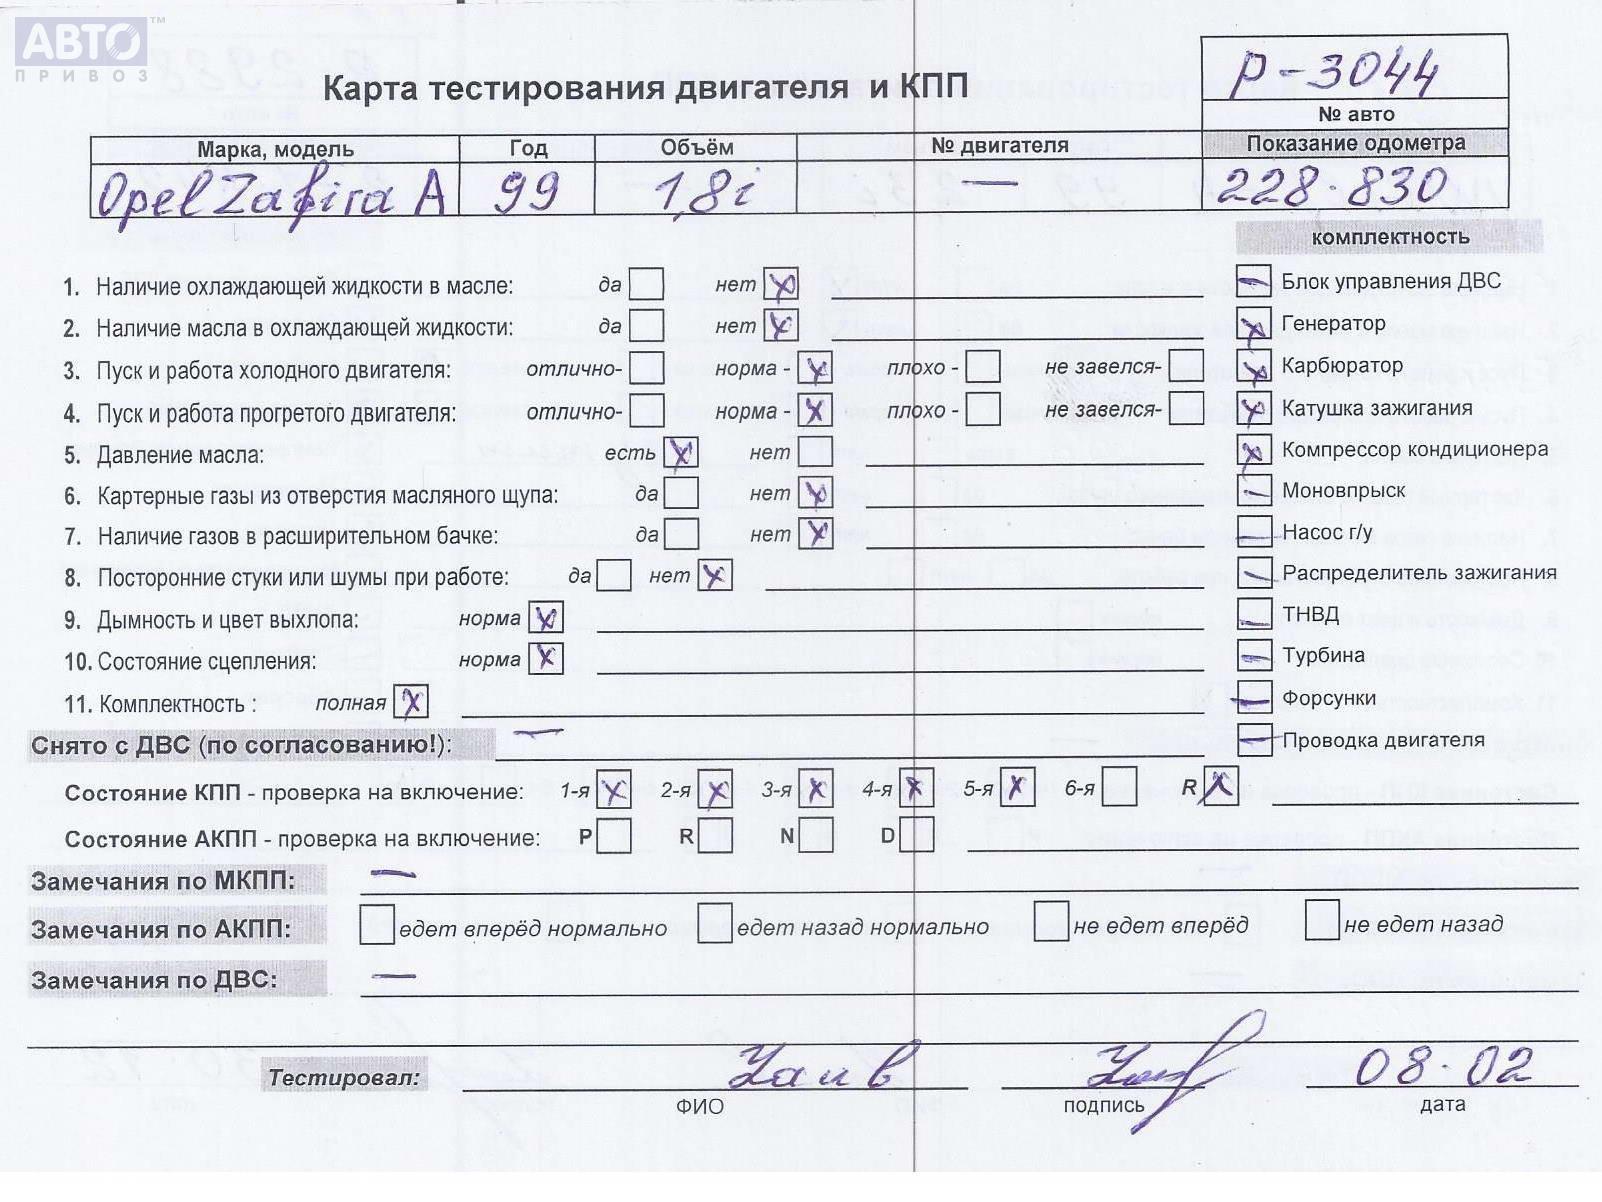 АВТО™
ПРИВОЗ
Карта тестирования двигателя и КПП
P-3044
№ авто
Марка, модель Год Объём № двигателя Показание одометра
Opel Zafira A 99 1,8i — 228.830
комплектность
1. Наличие охлаждающей жидкости в масле: да нет x
2. Наличие масла в охлаждающей жидкости: да нет x
3. Пуск и работа холодного двигателя: отлично- норма - x плохо - не завелся-
4. Пуск и работа прогретого двигателя: отлично- норма - x плохо - не завелся-
5. Давление масла: есть x нет
6. Картерные газы из отверстия масляного щупа: да нет x
7. Наличие газов в расширительном бачке: да нет x
8. Посторонние стуки или шумы при работе: да нет x
9. Дымность и цвет выхлопа: норма x
10. Состояние сцепления: норма x
11. Комплектность : полная x
— Блок управления ДВС
x Генератор
x Карбюратор
x Катушка зажигания
x Компрессор кондиционера
— Моновпрыск
— Насос г/у
— Распределитель зажигания
— ТНВД
— Турбина
— Форсунки
— Проводка двигателя
Снято с ДВС (по согласованию!): —
Состояние КПП - проверка на включение: 1-я x 2-я x 3-я x 4-я x 5-я x 6-я R x
Состояние АКПП - проверка на включение: P R N D
Замечания по МКПП: —
Замечания по АКПП: едет вперёд нормально едет назад нормально не едет вперёд не едет назад
Замечания по ДВС: —
Тестировал: 08.02
ФИО подпись дата